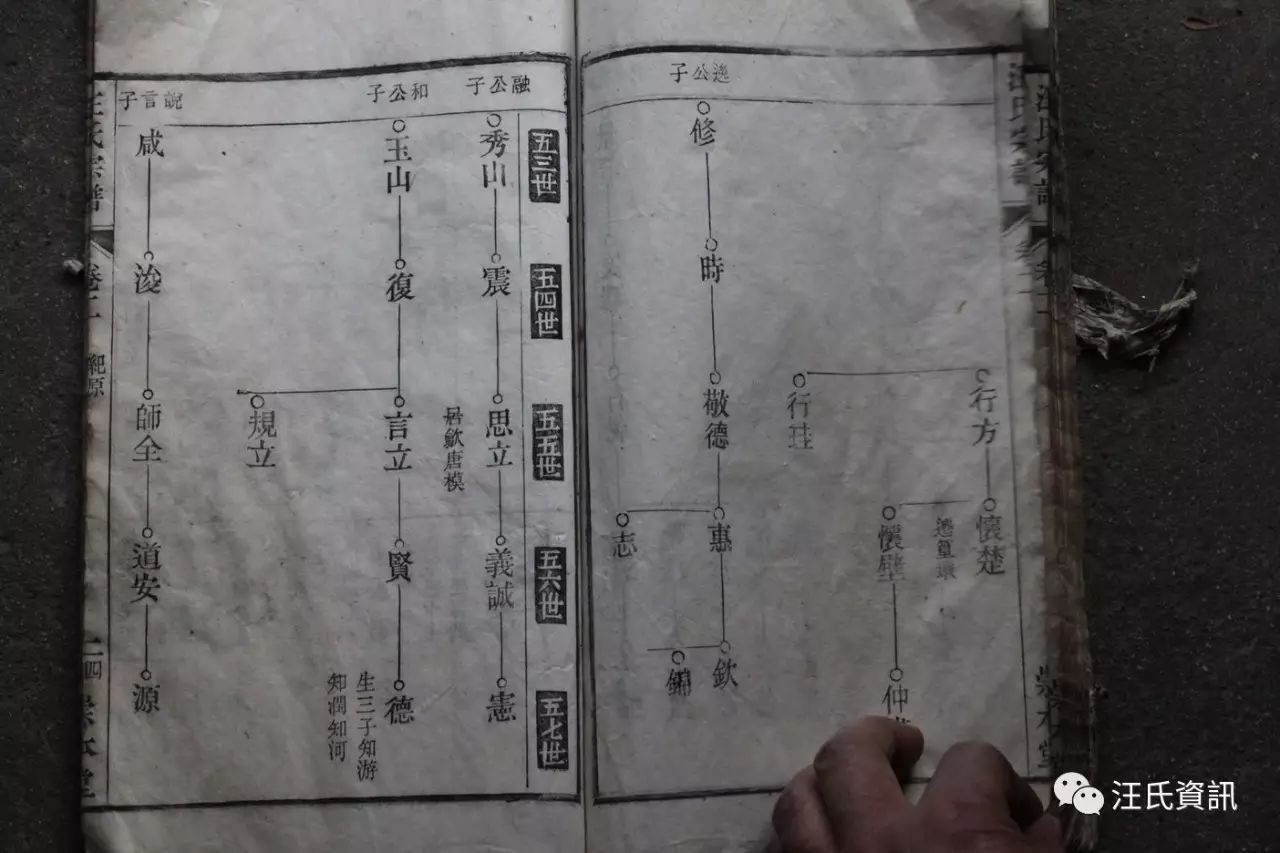 行方
懷楚
行珪
懷璧
公子
修
時
敬德
惠
欽
志
五三世
五四世
五五世
五六世
五七世
融公子
秀山
震
思立
居歙唐模
義誠
憲
和公子
玉山
復
言立
賢
德
生三子知游
知潤知河
規立
說言子
咸
浚
師全
道安
源
汪氏宗譜
卷二
紀原
二四
崇本堂
汪氏資訊